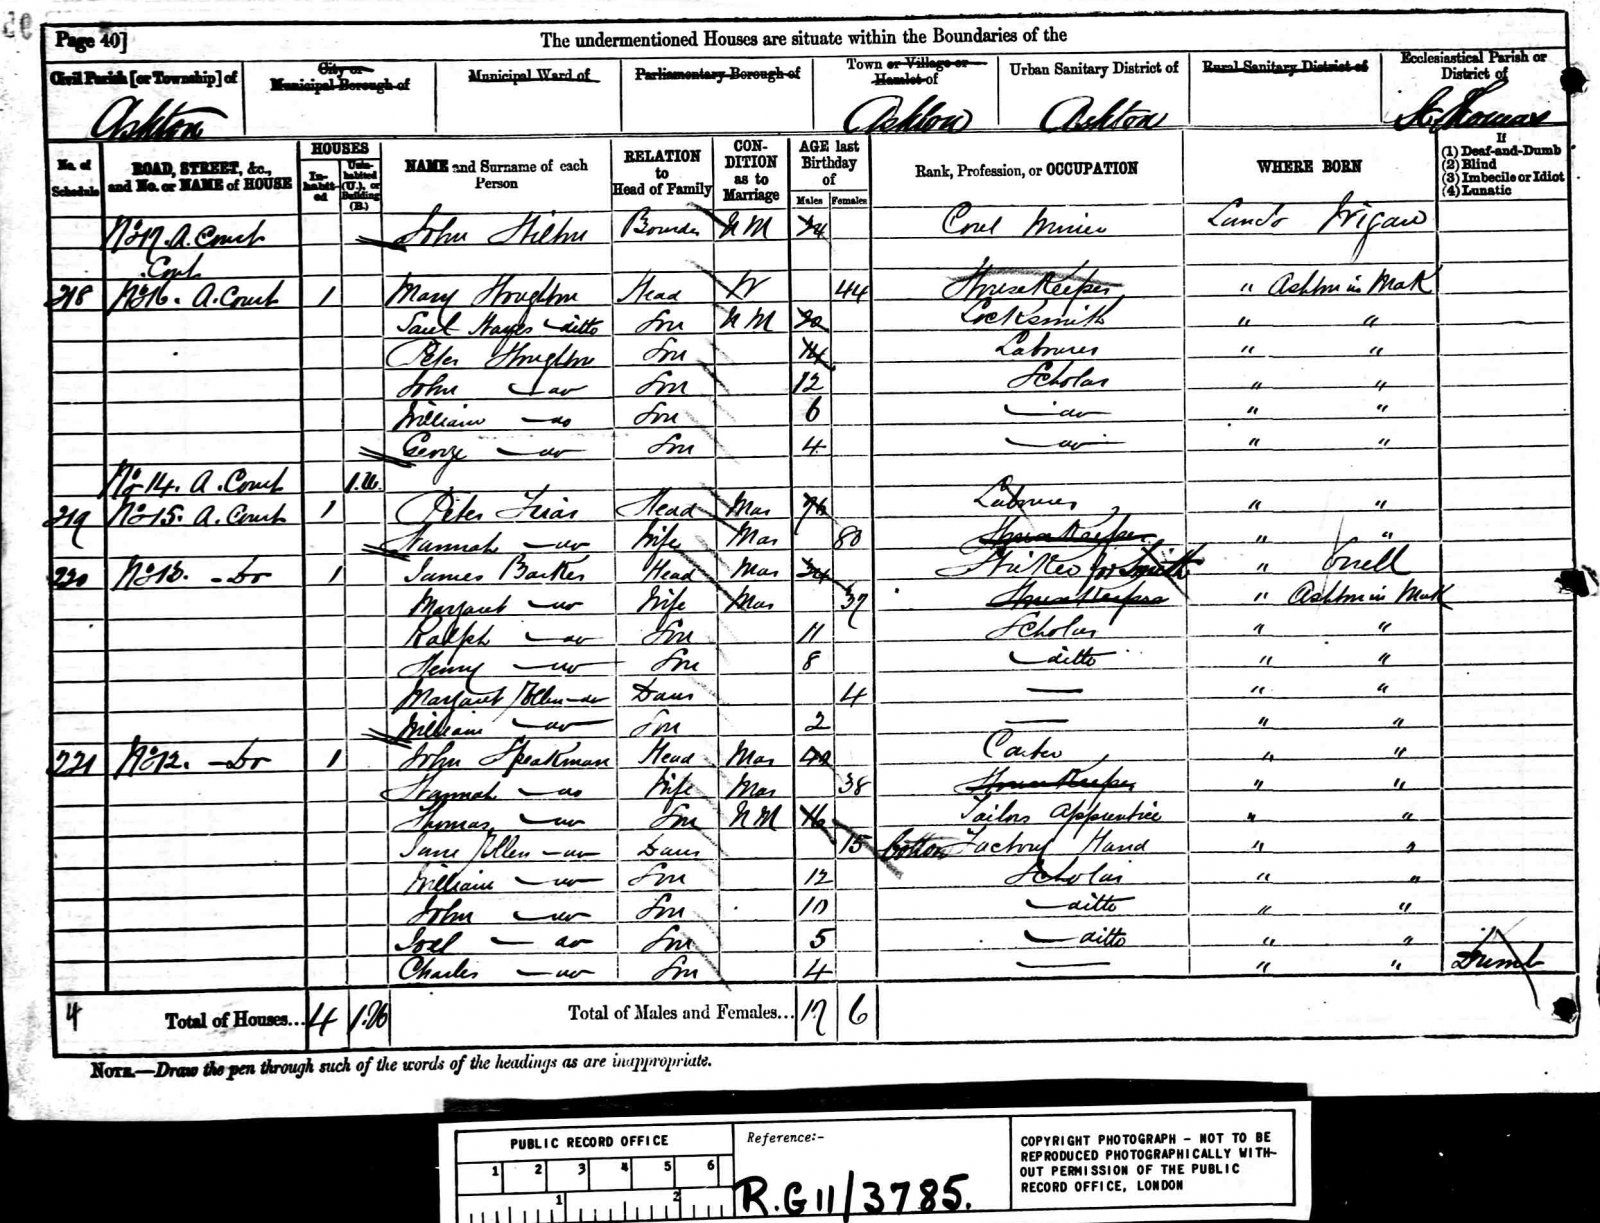 Page 40]
The undermentioned Houses are situate within the Boundaries of the
Civil Parish [or Township] of
City or Municipal Borough of
Municipal Ward of
Parliamentary Borough of
Town or Village or Hamlet of
Urban Sanitary District of
Rural Sanitary District of
Ecclesiastical Parish or District of
Ashton Ashton Ashton St. Thomas
No. of Schedule
ROAD, STREET, &c., and No. or NAME of HOUSE
HOUSES
In-habit-ed
Unin-habited (U.), or Building (B.)
NAME and Surname of each Person
RELATION to Head of Family
CON-DITION as to Marriage
AGE last Birthday of
Males Females
Rank, Profession, or OCCUPATION
WHERE BORN
If
(1) Deaf-and-Dumb
(2) Blind
(3) Imbecile or Idiot
(4) Lunatic
No 17. A. Court John Hilton Boarder UM 24 Coal Miner Lancs Wigan
Cont
218 No 16. A. Court 1 Mary Houghton Head W 44 House Keeper " Ashton in Mak
Saul Hayes ditto Son UM 20 Locksmith " "
Peter Houghton Son 14 Labourer " "
John do Son 12 Scholar " "
William do Son 6 do " "
George do Son 4 do " "
No 14. A. Court 1.U.
219 No 15. A. Court 1 Peter Head Mar 76 Labourer " "
Hannah do Wife Mar 80 House Keeper " "
220 No 13. Do 1 James Barker Head Mar 34 Striker for Smith " Orrell
Margaret do Wife Mar 37 House Keeper " Ashton in Mak
Ralph do Son 11 Scholar " "
Henry do Son 8 ditto " "
Margaret Ellen do Daur 4 — " "
William do Son 2 — " "
221 No 12. Do 1 John Speakman Head Mar 40 Carter " "
Hannah do Wife Mar 38 House Keeper " "
Thomas do Son UM 16 Tailors Apprentice " "
Jane Ellen do Daur 15 Cotton Factory Hand " "
William do Son 12 Scholar " "
John do Son 10 ditto " "
Joel do Son 5 ditto " "
Charles do Son 4 — " " Dumb
4 Total of Houses... 4 1.U Total of Males and Females... 17 6
NOTE.—Draw the pen through such of the words of the headings as are inappropriate.
PUBLIC RECORD OFFICE
1 2 3 4 5 6
1 2
Reference:-
R.G 11/3785.
COPYRIGHT PHOTOGRAPH - NOT TO BE
REPRODUCED PHOTOGRAPHICALLY WITH-
OUT PERMISSION OF THE PUBLIC
RECORD OFFICE, LONDON